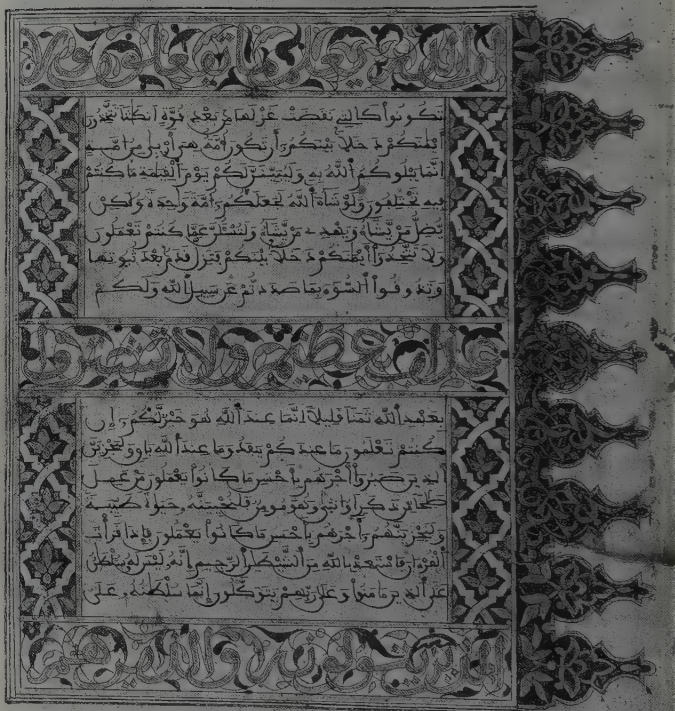 ان الله يعلم ما تفعلون ولا
تكونوا كالتي نقضت غزلها من بعد قوة انكاثا تتخذون
أيمنكم دخلا بينكم أن تكون أمة هي أربى من أمة
إنما يبلوكم الله به وليبينن لكم يوم القيمة ما كنتم
فيه تختلفون ولو شاء الله لجعلكم أمة وحدة ولكن
يضل من يشاء ويهدي من يشاء ولتسئلن عما كنتم تعملون
ولا تتخذوا أيمنكم دخلا بينكم فتزل قدم بعد ثبوتها
وتذوقوا السوء بما صددتم عن سبيل الله ولكم
عذاب عظيم ولا تشتروا
بعهد الله ثمنا قليلا إنما عند الله هو خير لكم إن
كنتم تعلمون ما عندكم ينفد وما عند الله باق وليجزين
الذين صبروا أجرهم بأحسن ما كانوا يعملون من عمل
صلحا من ذكر أو أنثى وهو مومن فلنحيينه حيوة طيبة
ولنجزينهم أجرهم بأحسن ما كانوا يعملون فإذا قرأت
القرءان فاستعذ بالله من الشيطن الرجيم إنه ليس له سلطن
على الذين ءامنوا وعلى ربهم يتوكلون إنما سلطنه على
الذين يتولونه والذين هم